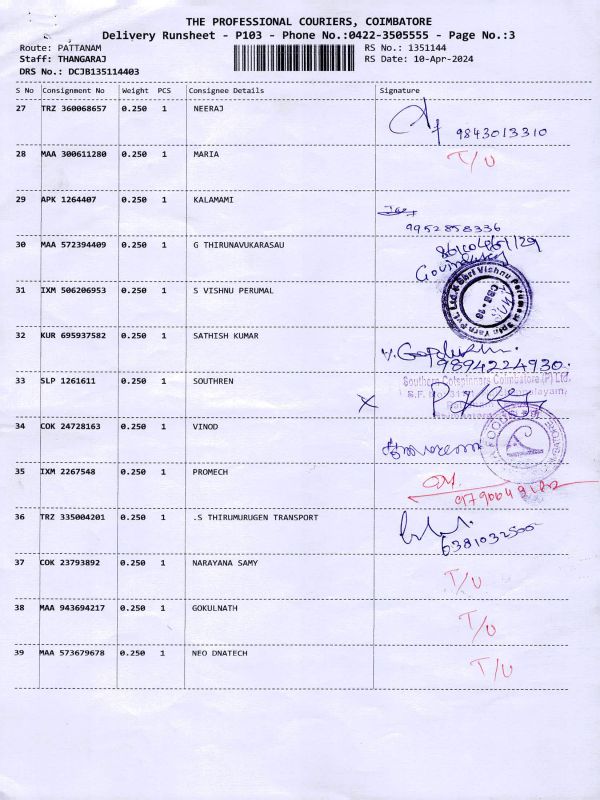 THE PROFESSIONAL COURIERS, COIMBATORE
Delivery Runsheet - P103 - Phone No.:0422-3505555 - Page No.:3
Route: PATTANAM RS No.: 1351144
Staff: THANGARAJ RS Date: 10-Apr-2024
DRS No.: DCJB135114403
S No Consignment No Weight PCS Consignee Details Signature
27 TRZ 360068657 0.250 1 NEERAJ
9843013310
28 MAA 300611280 0.250 1 MARIA T/U
29 APK 1264407 0.250 1 KALAMAMI
9952858336
30 MAA 572394409 0.250 1 G THIRUNAVUKARASAU
31 IXM 506206953 0.250 1 S VISHNU PERUMAL
Shri Vishnu Perumal Spin Yarn Pvt. Ltd.
32 KUR 695937582 0.250 1 SATHISH KUMAR
9894224930
33 SLP 1261611 0.250 1 SOUTHREN
Southern Cotspinners Coimbatore (P) Ltd.
34 COK 24728163 0.250 1 VINOD
35 IXM 2267548 0.250 1 PROMECH
36 TRZ 335004201 0.250 1 .S THIRUMURUGEN TRANSPORT
6381032500
37 COK 23793892 0.250 1 NARAYANA SAMY T/U
38 MAA 943694217 0.250 1 GOKULNATH T/U
39 MAA 573679678 0.250 1 NEO DNATECH T/U